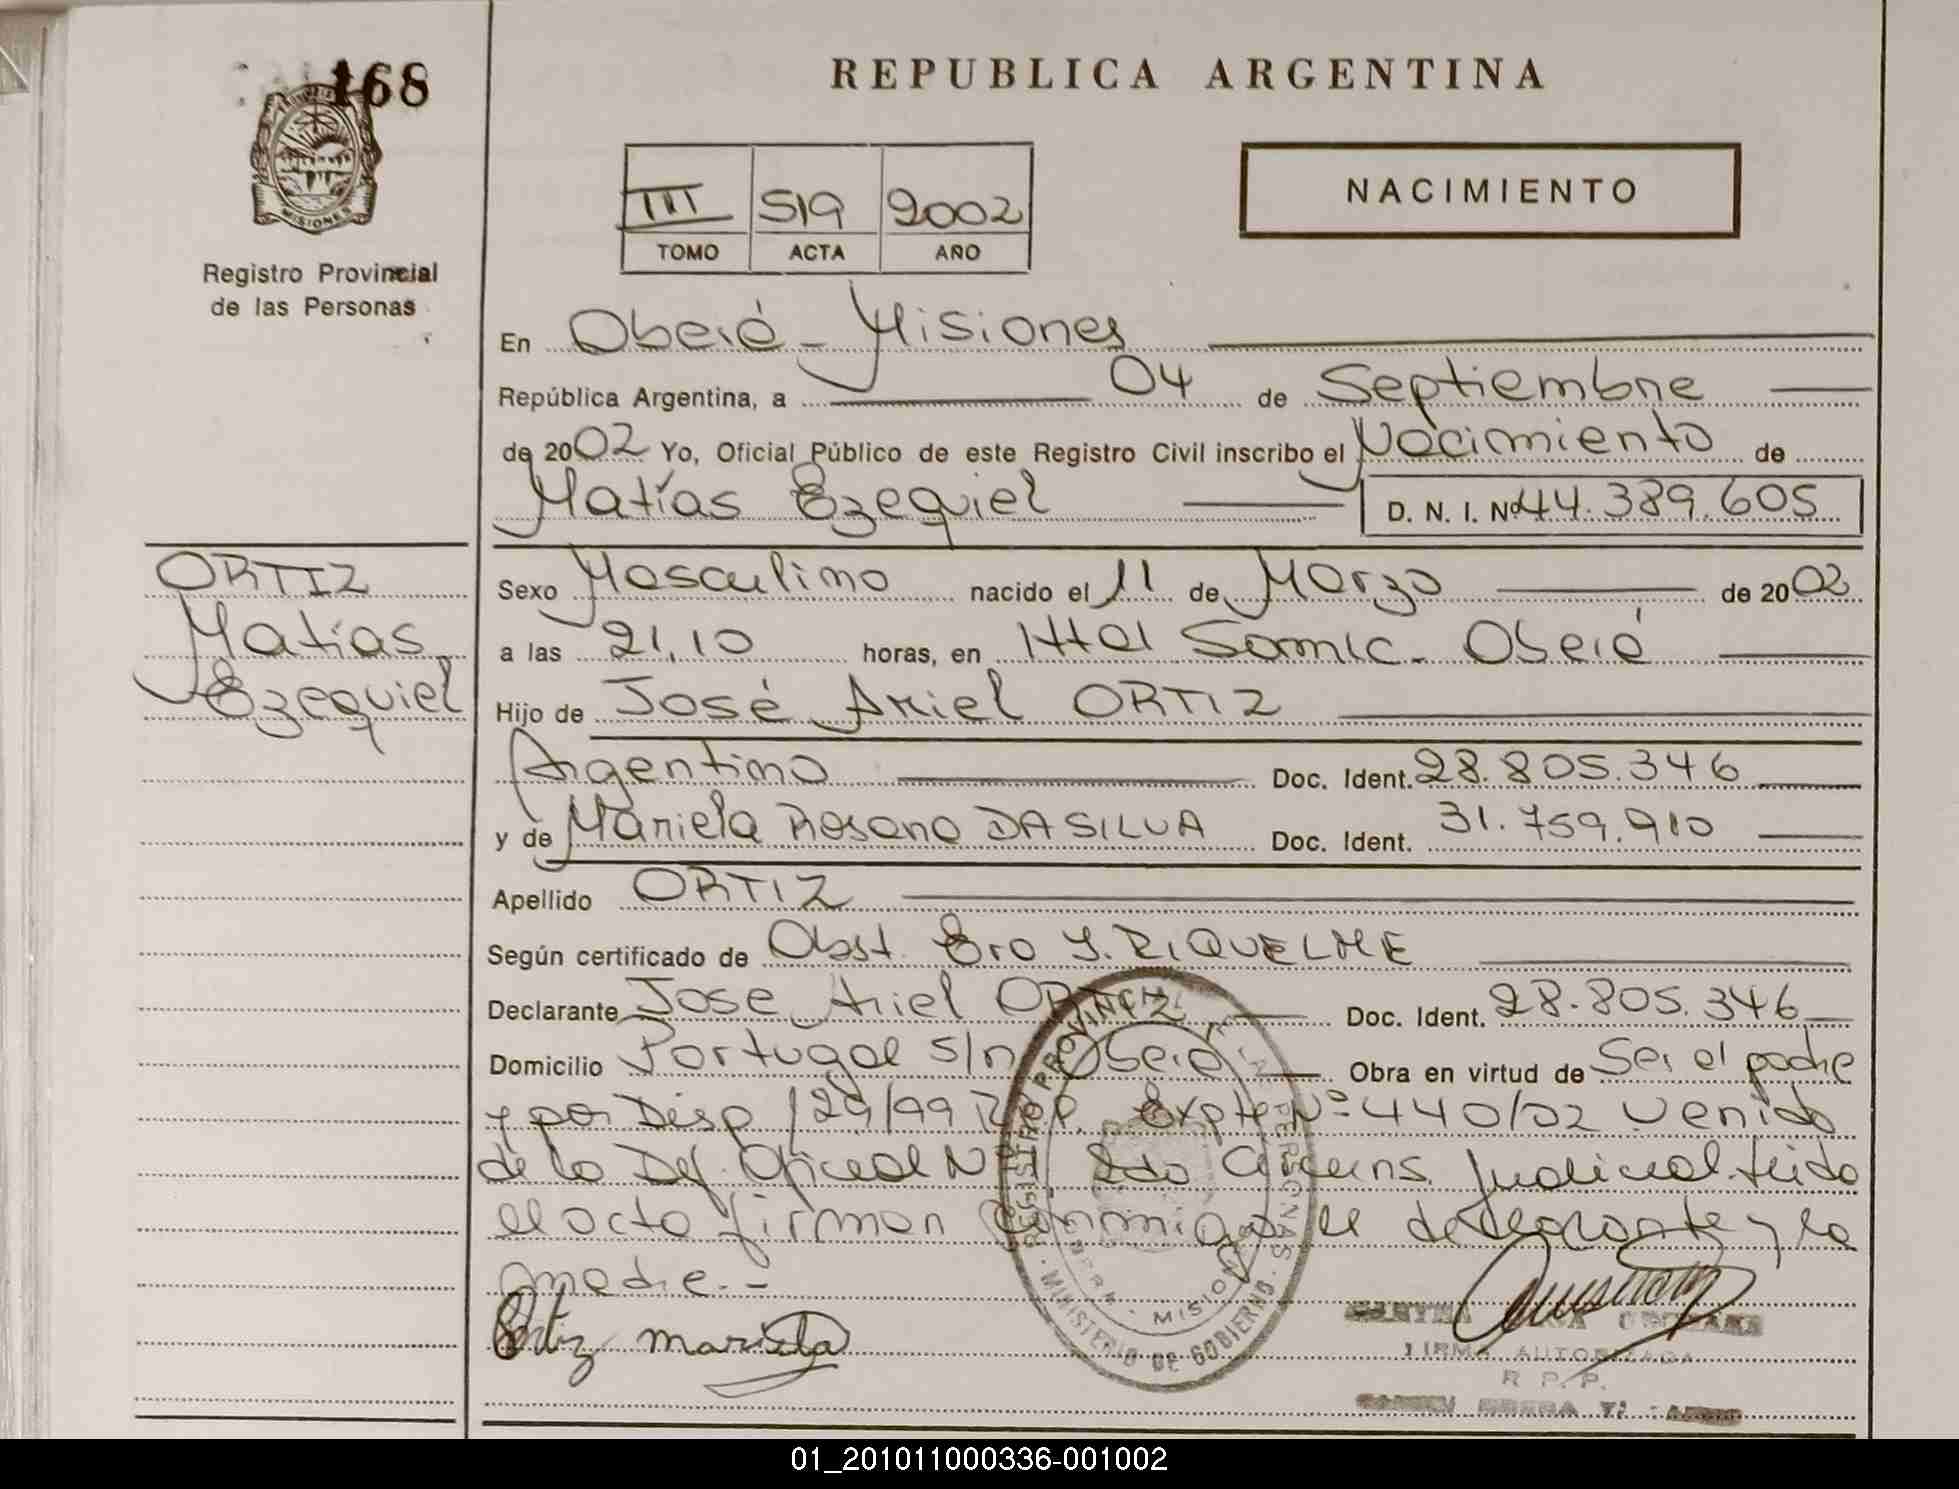 168
MISIONES
Registro Provincial
de las Personas
REPUBLICA ARGENTINA
III 519 2002
TOMO ACTA AÑO
NACIMIENTO
En Oberá - Misiones
República Argentina, a 04 de Septiembre
de 2002 Yo, Oficial Público de este Registro Civil inscribo el Nacimiento de
Matías Ezequiel D. N. I. Nº 44.389.605
ORTIZ
Matías
Ezequiel
Sexo Masculino nacido el 11 de Marzo de 2002
a las 21,10 horas, en Htal Samic - Oberá
Hijo de José Ariel ORTIZ
Argentino Doc. Ident. 28.805.346
y de Mariela Rosana DA SILVA Doc. Ident. 31.759.910
Apellido ORTIZ
Según certificado de Obst. Y. RIQUELME
Declarante Jose Ariel ORTIZ Doc. Ident. 28.805.346
Domicilio Portugal s/n Oberá Obra en virtud de Ser el padre
y por Disp 129/99 R.P.P. Expte Nº 440/02 venido
de la Def. Oficial Nº 2da Circuns. Judicial leida
el acta firman conmigo el declarante y la
madre.--
REGISTRO PROVINCIAL DE LAS PERSONAS
MINISTERIO DE GOBIERNO
MISIONES
Ortiz mariela
FIRMA AUTORIZADA
R. P. P.
01_201011000336-001002